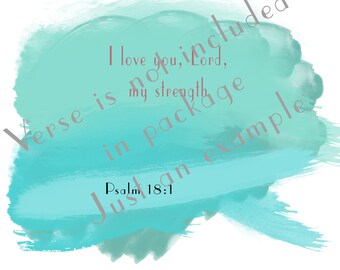 I love you, Lord,
my strength
Psalm 18:1
Verse is not included
in package
Just an example